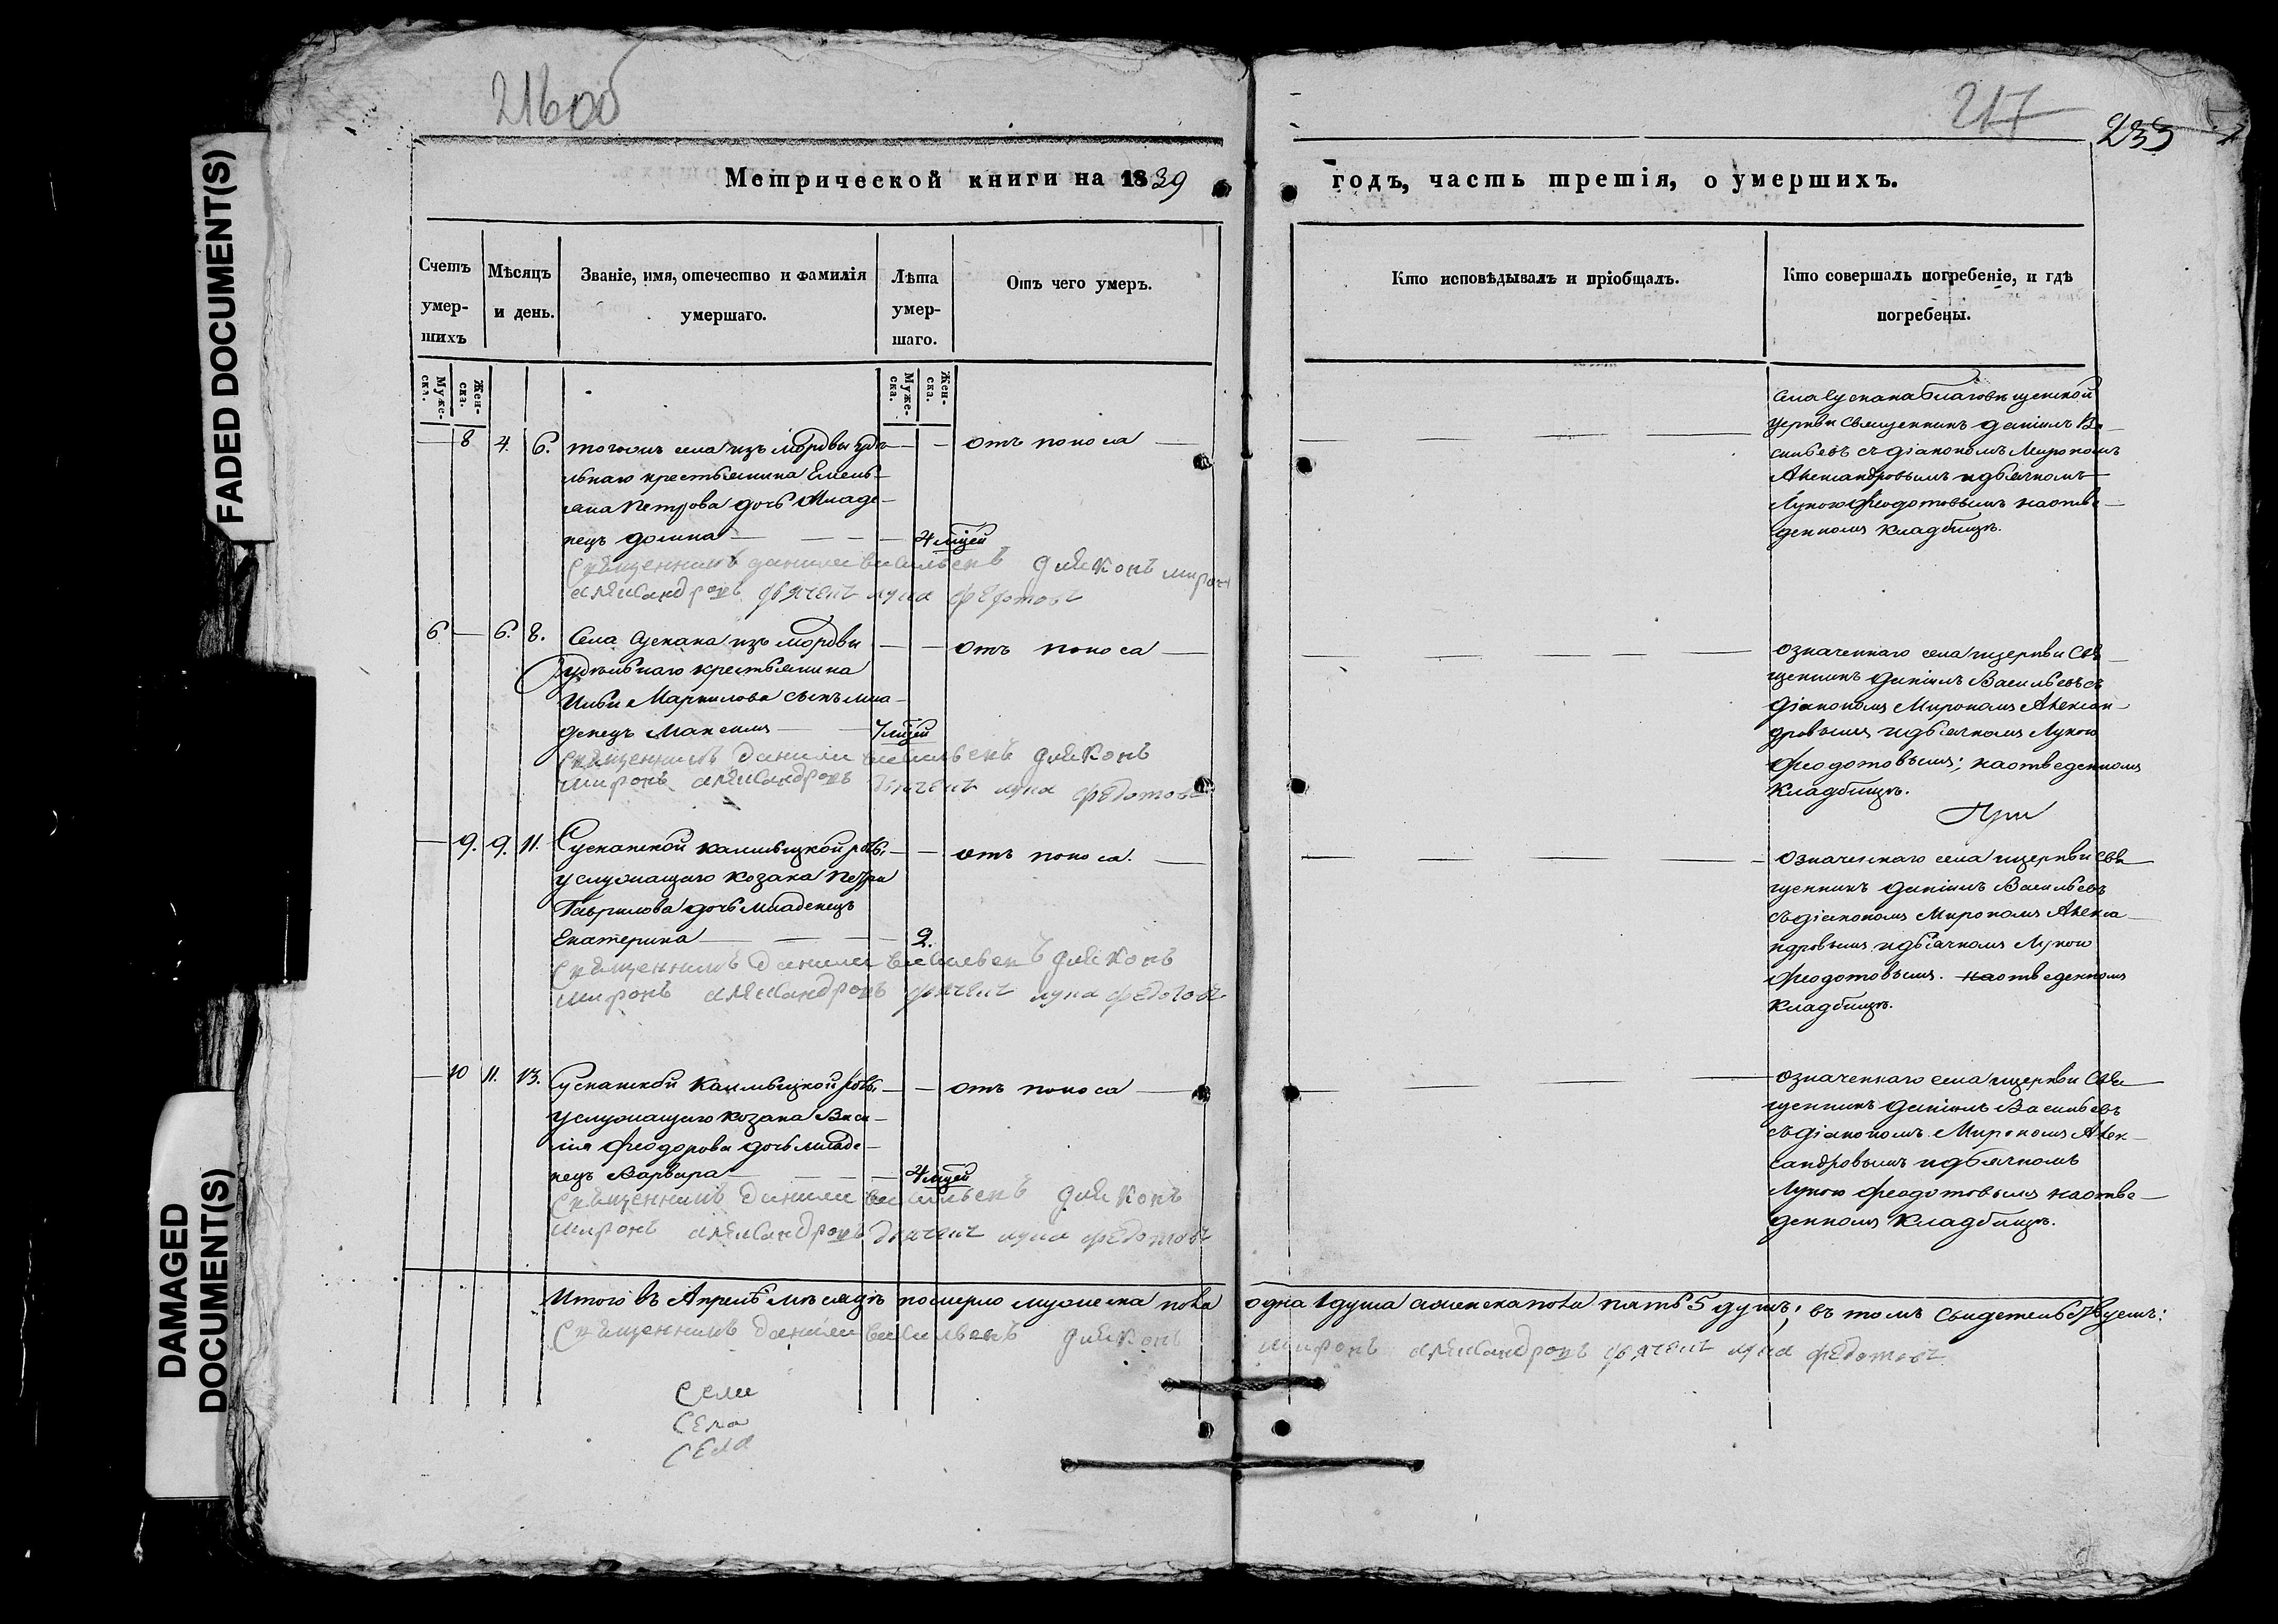 216об
217
233
Метрической книги на 1839
годъ, часть третія, о умершихъ.
Счетъ умер-шихъ
Мѣсяцъ и день.
Званіе, имя, отечество и фамилія умершаго.
Лѣта умер-шаго.
Отъ чего умеръ.
Кто исповѣдывалъ и пріобщалъ.
Кто совершалъ погребеніе, и гдѣ погребены.
Муже-ска.
Жен-ска.
Муже-ска.
Жен-ска.
8 4. 6. тогожъ села изъ мордвы удѣ-
льнаго крестьянина Емель-
яна Петрова дочь Младе-
нецъ Домна 4 мцей
отъ поноса
Села Сускана благовѣщенской
церкви священникъ Даніилъ Ва-
сильевъ съ діакономъ Мирономъ
Александровымъ и дьячкомъ
Лукою Феодотовымъ на отве-
денномъ кладбищѣ.
священникъ данило васильевъ дияконъ мирон
александровъ дьячекъ лука федотовъ
6 6. 8. Села Сускана изъ мордвы
удѣльнаго крестьянина
сынъ мла-
денецъ Максимъ 7 мцей
отъ поноса
означеннаго села и церкви Свя-
щенникъ Даніилъ Васильевъ съ
діакономъ Мирономъ Алексан-
дровымъ и дьячкомъ Лукою
Феодотовымъ; на отведенномъ
кладбищѣ.
священникъ данило васильевъ дияконъ
миронъ александровъ дьячекъ лука федотовъ
9. 9. 11. Сусканской калмыцкой
услужащаго козака Петра
Гаврилова дочь младенецъ
Екатерина 2.
отъ поноса.
означеннаго села и церкви свя-
щенникъ Даніилъ Васильевъ
съ діакономъ Мирономъ Алекса-
ндровымъ и дьячкомъ Лукою
Феодотовымъ. на отведенномъ
кладбищѣ.
священникъ данило васильевъ дияконъ
миронъ александровъ дьячекъ лука федотовъ
10 11. 13. Сусканской калмыцкой
услужащаго козака Васи-
лія Феодорова дочь младе-
нецъ Варвара 4 мцей
отъ поноса
означеннаго села и церкви Свя-
щенникъ Даніилъ Васильевъ
съ діакономъ Мирономъ Алек-
сандровымъ и дьячкомъ
Лукою Феодотовымъ на отве-
денномъ кладбищѣ.
священникъ данило васильевъ дияконъ
миронъ александровъ дьячекъ лука федотовъ
Итого въ Апрелѣ мѣсяцѣ померло мужеска пола одна 1 душа а женска пола пять 5 душъ; въ томъ свидетельствуемъ:
священникъ данило васильевъ дияконъ миронъ александровъ дьячекъ лука федотовъ
Села
Села
Села
FADED DOCUMENT(S)
DAMAGED
DOCUMENT(S)